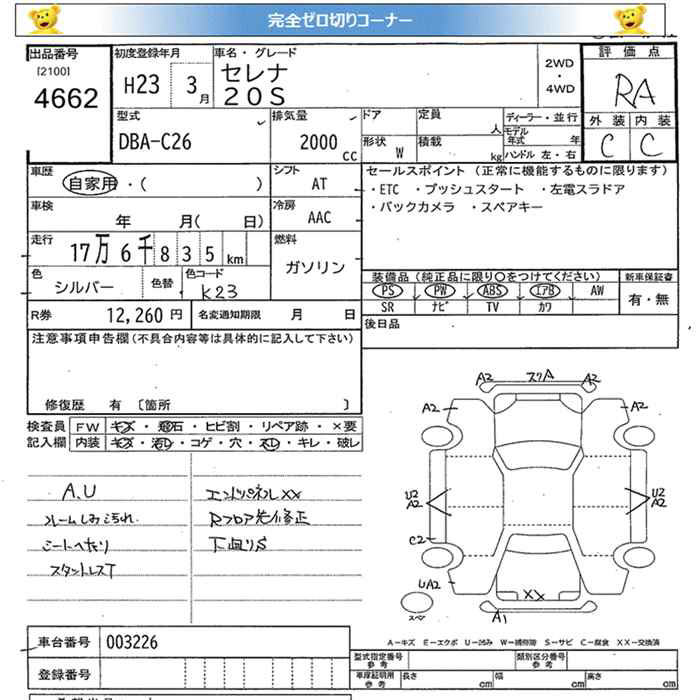 完全ゼロ切りコーナー
出品番号
[2100]
4662
初度登録年月
H23 3月
車名・グレード
セレナ
20S
2WD
・
4WD
評価点
RA
外装 内装
C C
型式
DBA-C26
排気量
2000 cc
ドア
形状 W
定員 人
積載 kg
ディーラー・並行
モデル年式 年
ハンドル 左・右
車歴
自家用・( )
シフト
AT
車検
年 月( 日)
冷房
AAC
走行
17万6千835km
燃料
ガソリン
色
シルバー
色替
色コード
K23
セールスポイント (正常に機能するものに限ります)
・ETC ・プッシュスタート ・左電スラドア
・バックカメラ ・スペアキー
装備品(純正品に限り○をつけてください)
PS PW ABS エアB AW
SR ナビ TV カワ
新車保証書
有・無
R券 12,260円
名変通知期限 月 日
後日品
注意事項申告欄(不具合内容等は具体的に記入して下さい)
修復歴 有 〔箇所 〕
検査員
記入欄
FW キズ・飛石・ヒビ割・リペア跡・×要
内装 キズ・汚レ・コゲ・穴・スレ・キレ・破レ
A.U
ルームしみ汚れ
シートへたり
スタットレスT
エンドパネルXX
Rフロア先修正
下回りS
A2 スリA A2
A2 A2
U2
A2
U2
A2
C2
UA2
XX
A1
スペア
A−キズ E−エクボ U−凹み W−補修跡 S−サビ C−腐食 XX−交換済
車台番号 003226
登録番号
型式指定番号
参考
類別区分番号
参考
車庫証明用
参考
長さ cm 幅 cm 高さ cm